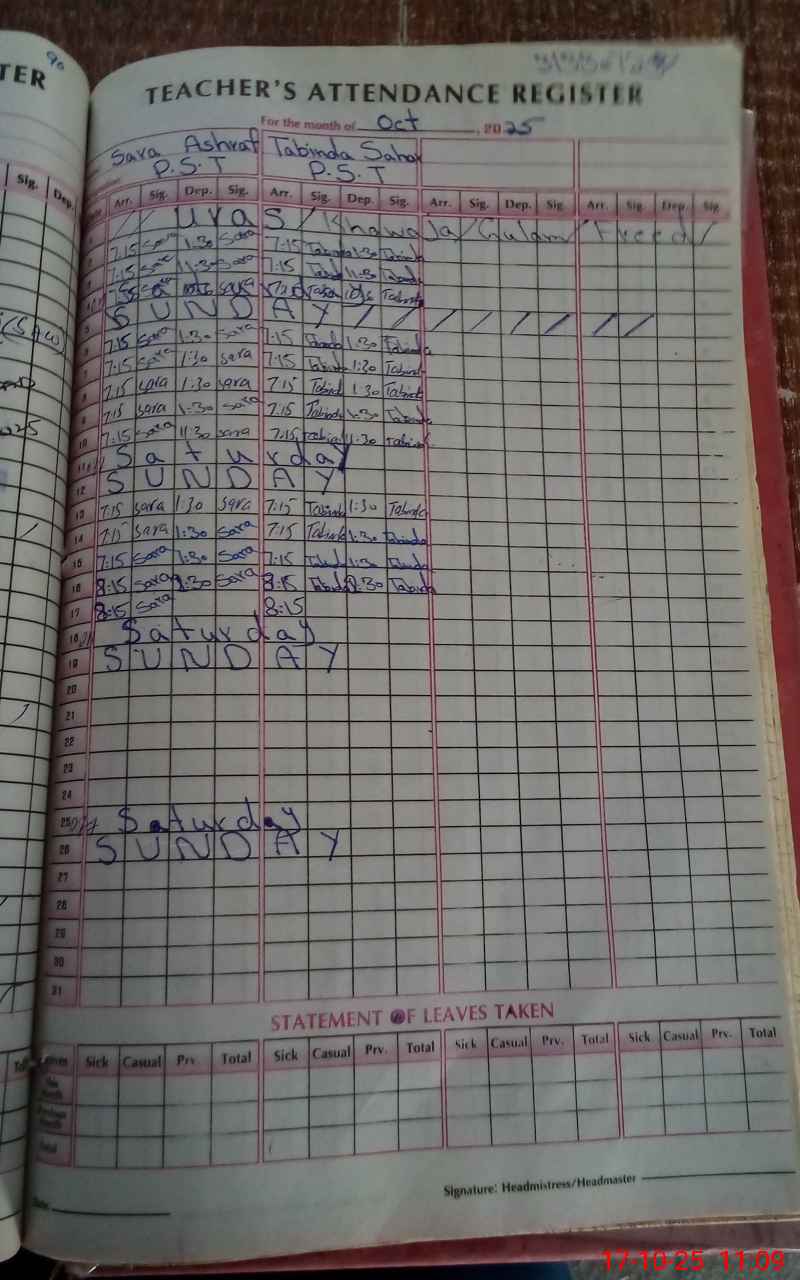 TER
90
TEACHER'S ATTENDANCE REGISTER
For the month of Oct, 2025
Sara Ashraf Tabinda Sahar
P.S.T P.S.T
Sig. Dep. Arr. Sig. Dep. Sig. Arr. Sig. Dep. Sig. Arr. Sig. Dep. Sig. Arr. Sig. Dep. Sig.
1 / / Uras / Khawaja / Gulam / Freed /
7:15 Sara 1:30 Sara 7:15 1:30
7:15 11:30 Sara 7:15 11:30
Sara
5 SUNDAY / / / / / / / /
6 7:15 Sara 1:30 Sara 7:15 1:30 Tabinda
7 7:15 1:30 Sara 7:15 1:30
8 7:15 Sara 1:30 Sara 7:15 1:30
9 7:15 Sara 1:30 Sara 7:15 1:30
10 7:15 Sara 11:30 Sara 7:15 11:30
11 Saturday
12 SUNDAY
13 7:15 Sara 1:30 Sara 7:15 Tabinda 1:30 Tabinda
14 7:15 Sara 1:30 Sara 7:15 Tabinda 1:30 Tabinda
15 7:15 Sara 1:30 Sara 7:15 1:30
16 8:15 Sara 2:30 Sara 8:15 Tabinda 2:30 Tabinda
17 8:15 Sara 8:15
18 Saturday
19 SUNDAY
20
21
22
23
24
25 Saturday
26 SUNDAY
27
28
29
30
31
STATEMENT OF LEAVES TAKEN
Leaves Sick Casual Prv. Total Sick Casual Prv. Total Sick Casual Prv. Total Sick Casual Prv. Total
This month
Previous month
Total
Signature: Headmistress/Headmaster
Date:
17-10-25 11:09